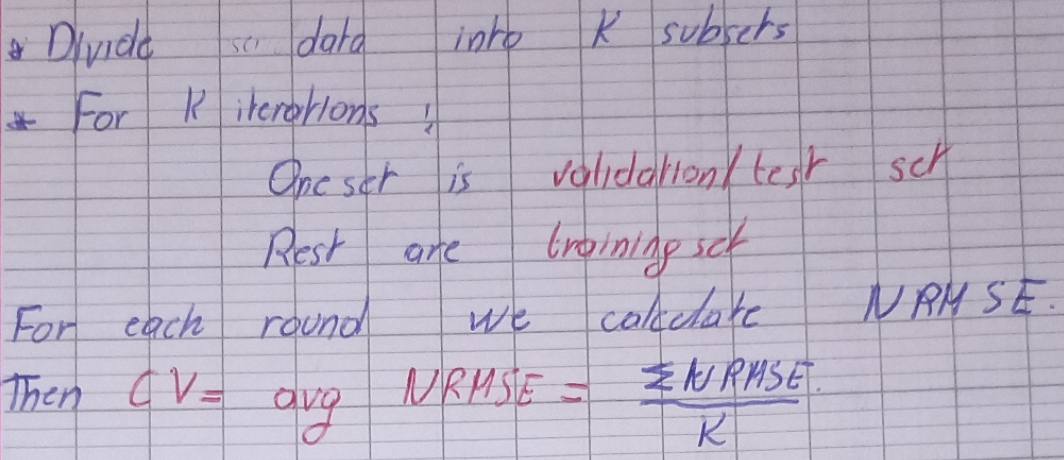 * Divide data into K subsets
* For K iterations :
One set is validation/test set
Rest are training set
For each round we calculate NRMSE.
Then CV = avg NRMSE = ΣNRMSE.
K